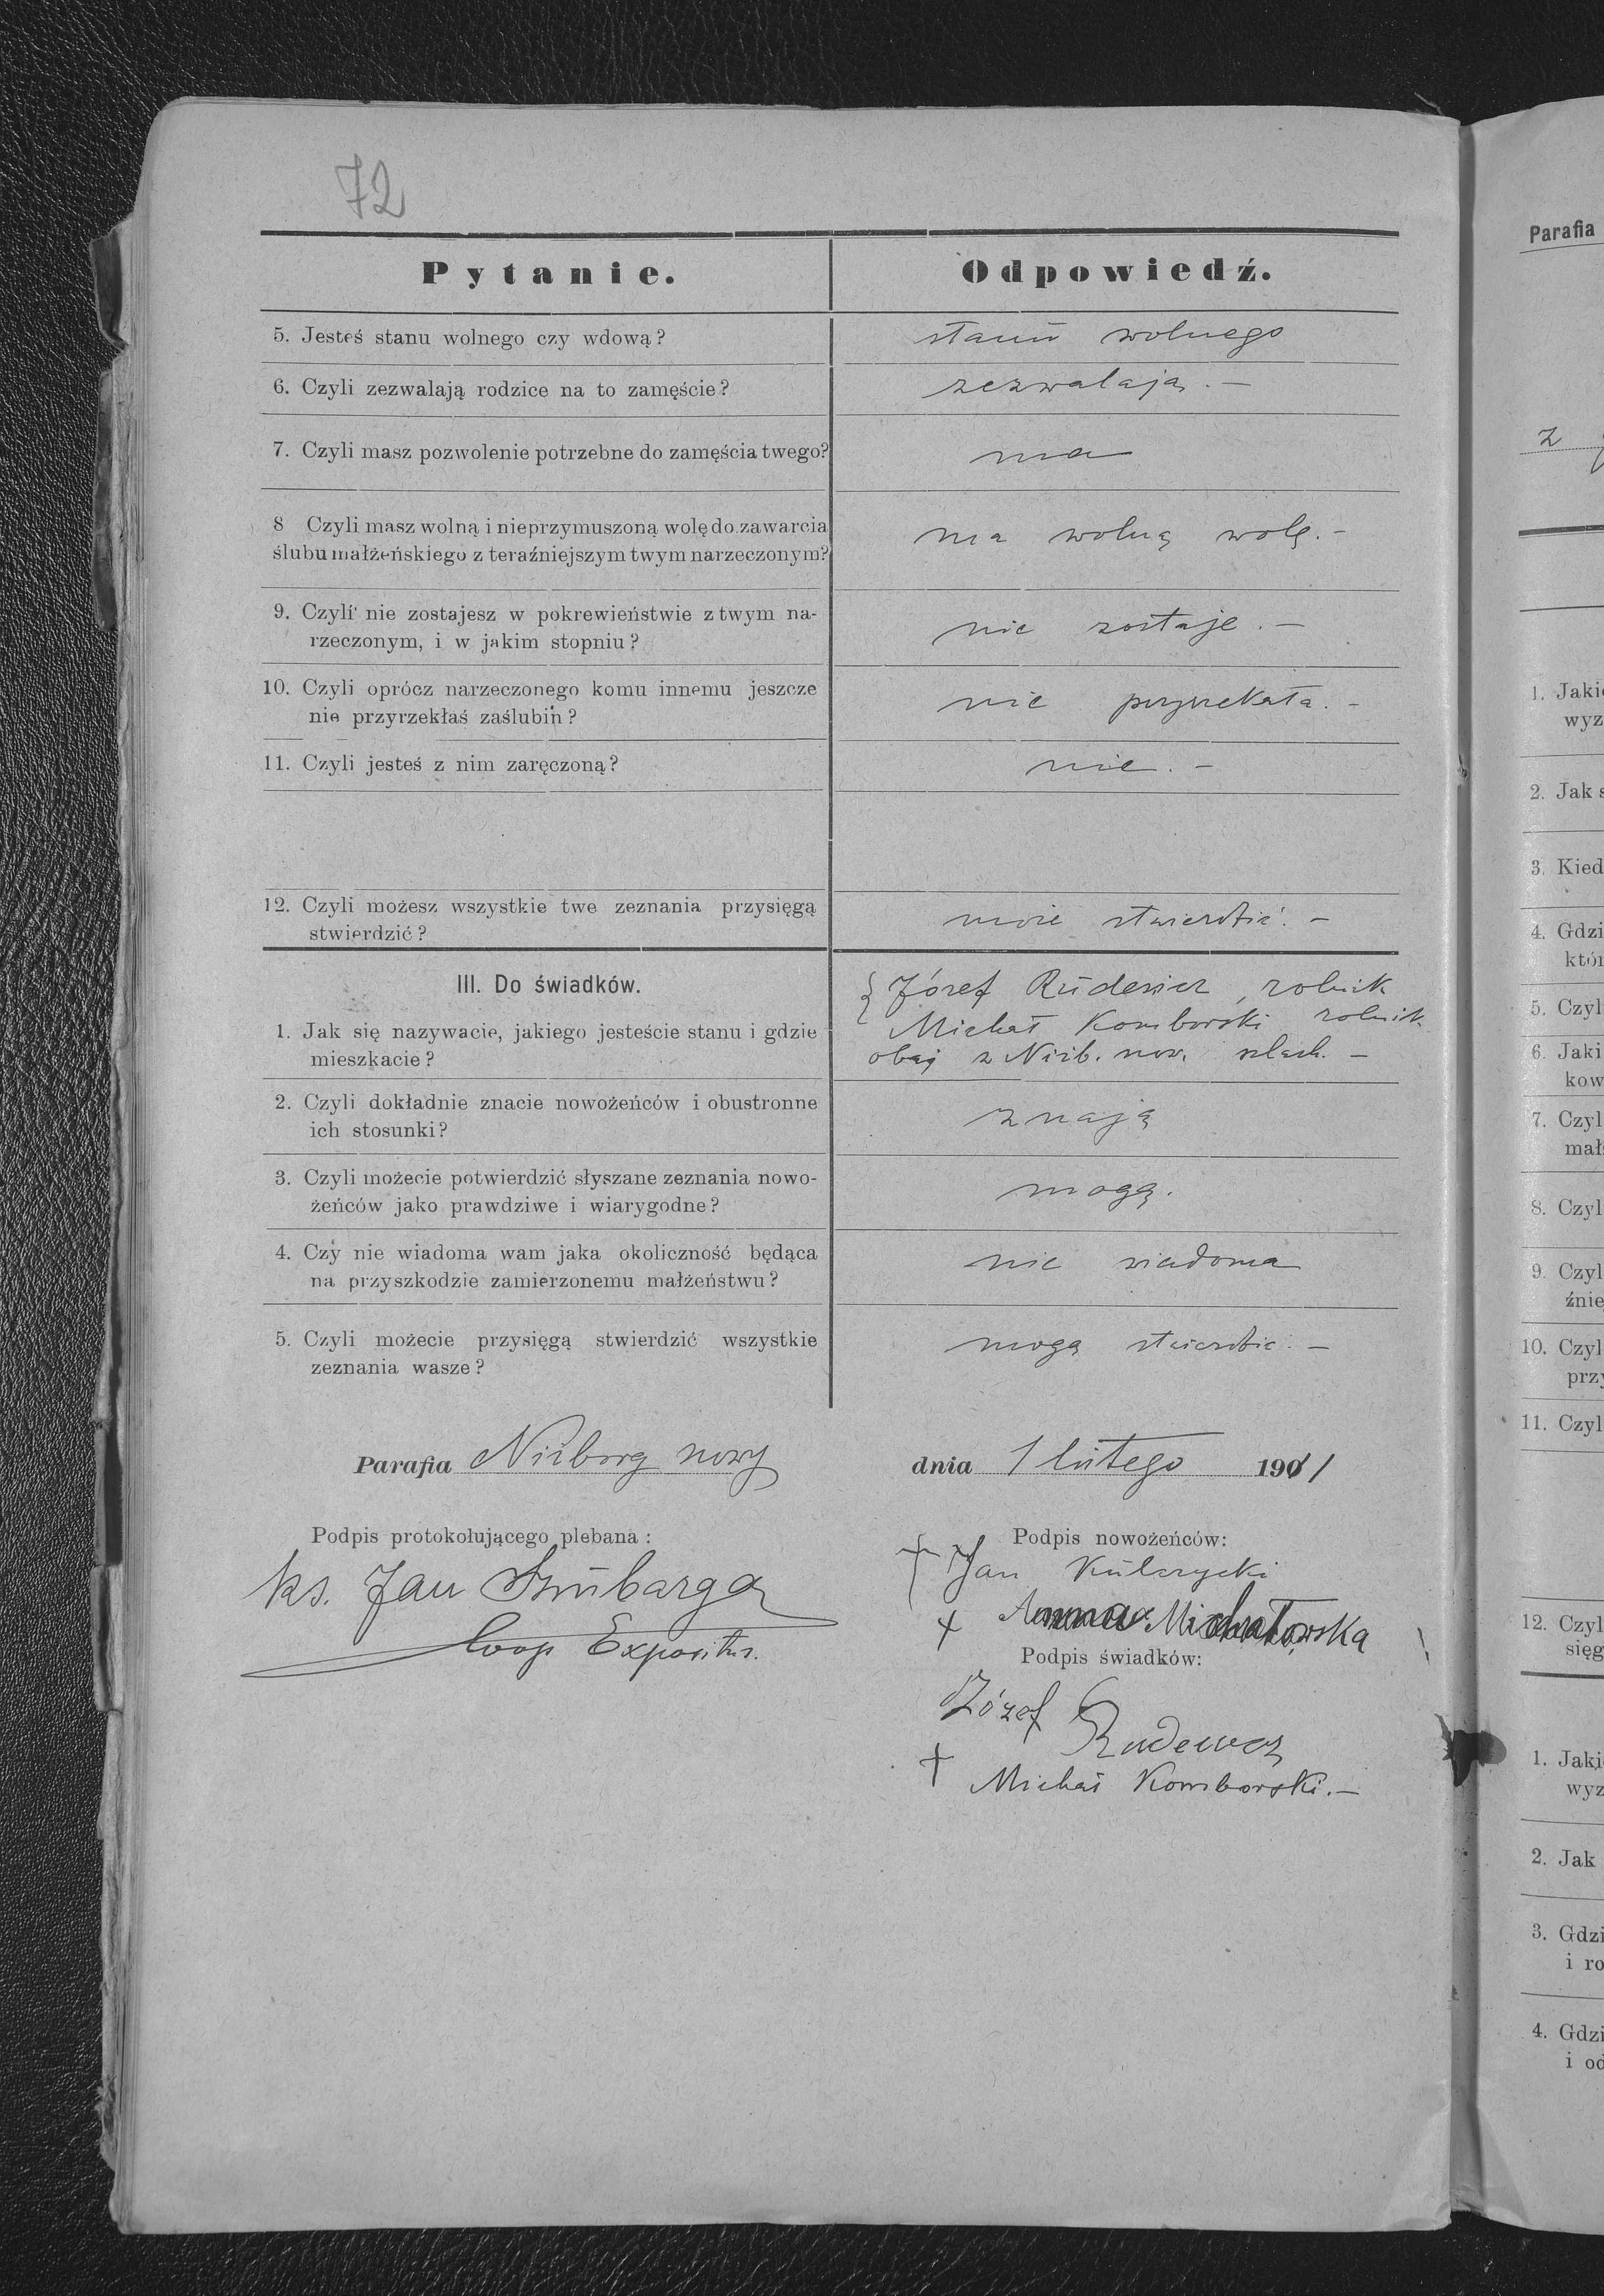 72
Pytanie.
Odpowiedź.
5. Jesteś stanu wolnego czy wdową?
stanu wolnego
6. Czyli zezwalają rodzice na to zamęście?
zezwalają. –
7. Czyli masz pozwolenie potrzebne do zamęścia twego?
ma
8 Czyli masz wolną i nieprzymuszoną wolę do zawarcia
ślubu małżeńskiego z teraźniejszym twym narzeczonym?
ma wolną wolę. –
9. Czyli nie zostajesz w pokrewieństwie z twym na-
rzeczonym, i w jakim stopniu?
nie zostaje. –
10. Czyli oprócz narzeczonego komu innemu jeszcze
nie przyrzekłaś zaślubin?
nie przyrzekała. –
11. Czyli jesteś z nim zaręczoną?
nie. –
12. Czyli możesz wszystkie twe zeznania przysięgą
stwierdzić?
może stwierdzić. –
III. Do świadków.
1. Jak się nazywacie, jakiego jesteście stanu i gdzie
mieszkacie?
Józef Rudewicz, rolnik
Michał Komborski rolnik
obaj z Niżb. now. szlach. –
2. Czyli dokładnie znacie nowożeńców i obustronne
ich stosunki?
znają
3. Czyli możecie potwierdzić słyszane zeznania nowo-
żeńców jako prawdziwe i wiarygodne?
mogą.
4. Czy nie wiadoma wam jaka okoliczność będąca
na przyszkodzie zamierzonemu małżeństwu?
nie wiadoma
5. Czyli możecie przysięgą stwierdzić wszystkie
zeznania wasze?
mogą stwierdzić. –
Parafia Niżborg nowy
dnia 1 lutego 1901
Podpis protokołującego plebana:
ks. Jan
Coop Expositus.
Podpis nowożeńców:
† Jan Kulczycki
+ Anna Michałowska
Podpis świadków:
Józef
Rudewicz
† Michał Komborski. –
Parafia
z
1. Jaki
wyz
2. Jak s
3. Kied
4. Gdzi
któr
5. Czyl
6. Jaki
kow
7. Czyl
małż
8. Czyl
9. Czyl
źnie
10. Czyl
przy
11. Czyl
12. Czyl
sięg
1. Jaki
wyz
2. Jak
3. Gdzi
i ro
4. Gdzi
i od